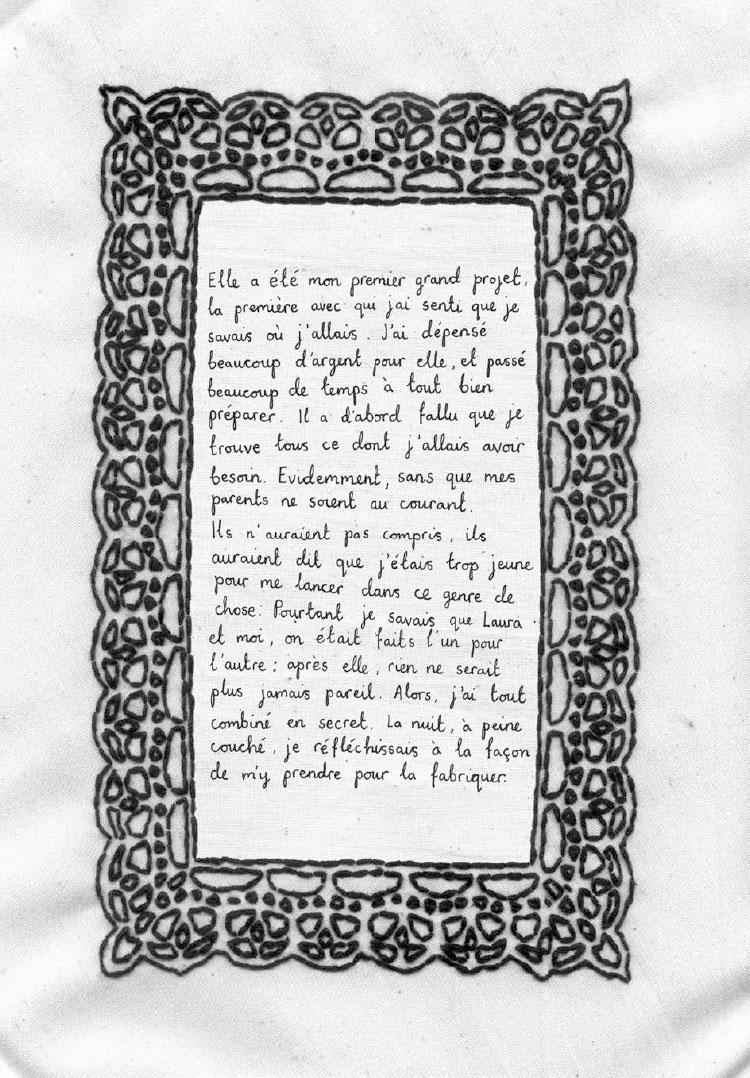 Elle a été mon premier grand projet,
la première avec qui j'ai senti que je
savais où j'allais. J'ai dépensé
beaucoup d'argent pour elle, et passé
beaucoup de temps à tout bien
préparer. Il a d'abord fallu que je
trouve tous ce dont j'allais avoir
besoin. Evidemment, sans que mes
parents ne soient au courant.
Ils n'auraient pas compris, ils
auraient dit que j'étais trop jeune
pour me lancer dans ce genre de
chose. Pourtant je savais que Laura
et moi, on était faits l'un pour
l'autre ; après elle, rien ne serait
plus jamais pareil. Alors, j'ai tout
combiné en secret. La nuit, à peine
couché, je réfléchissais à la façon
de m'y prendre pour la fabriquer.